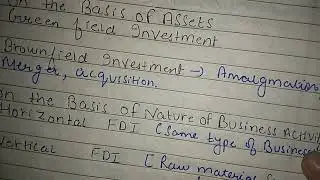 On the Basis of Assets
Green field Investment
Brownfield Investment → Amalgmation,
Merger, acquisition.
On the Basis of Nature of Business Activity
Horizontal FDI (Same type of Business
Vertical FDI [Raw material